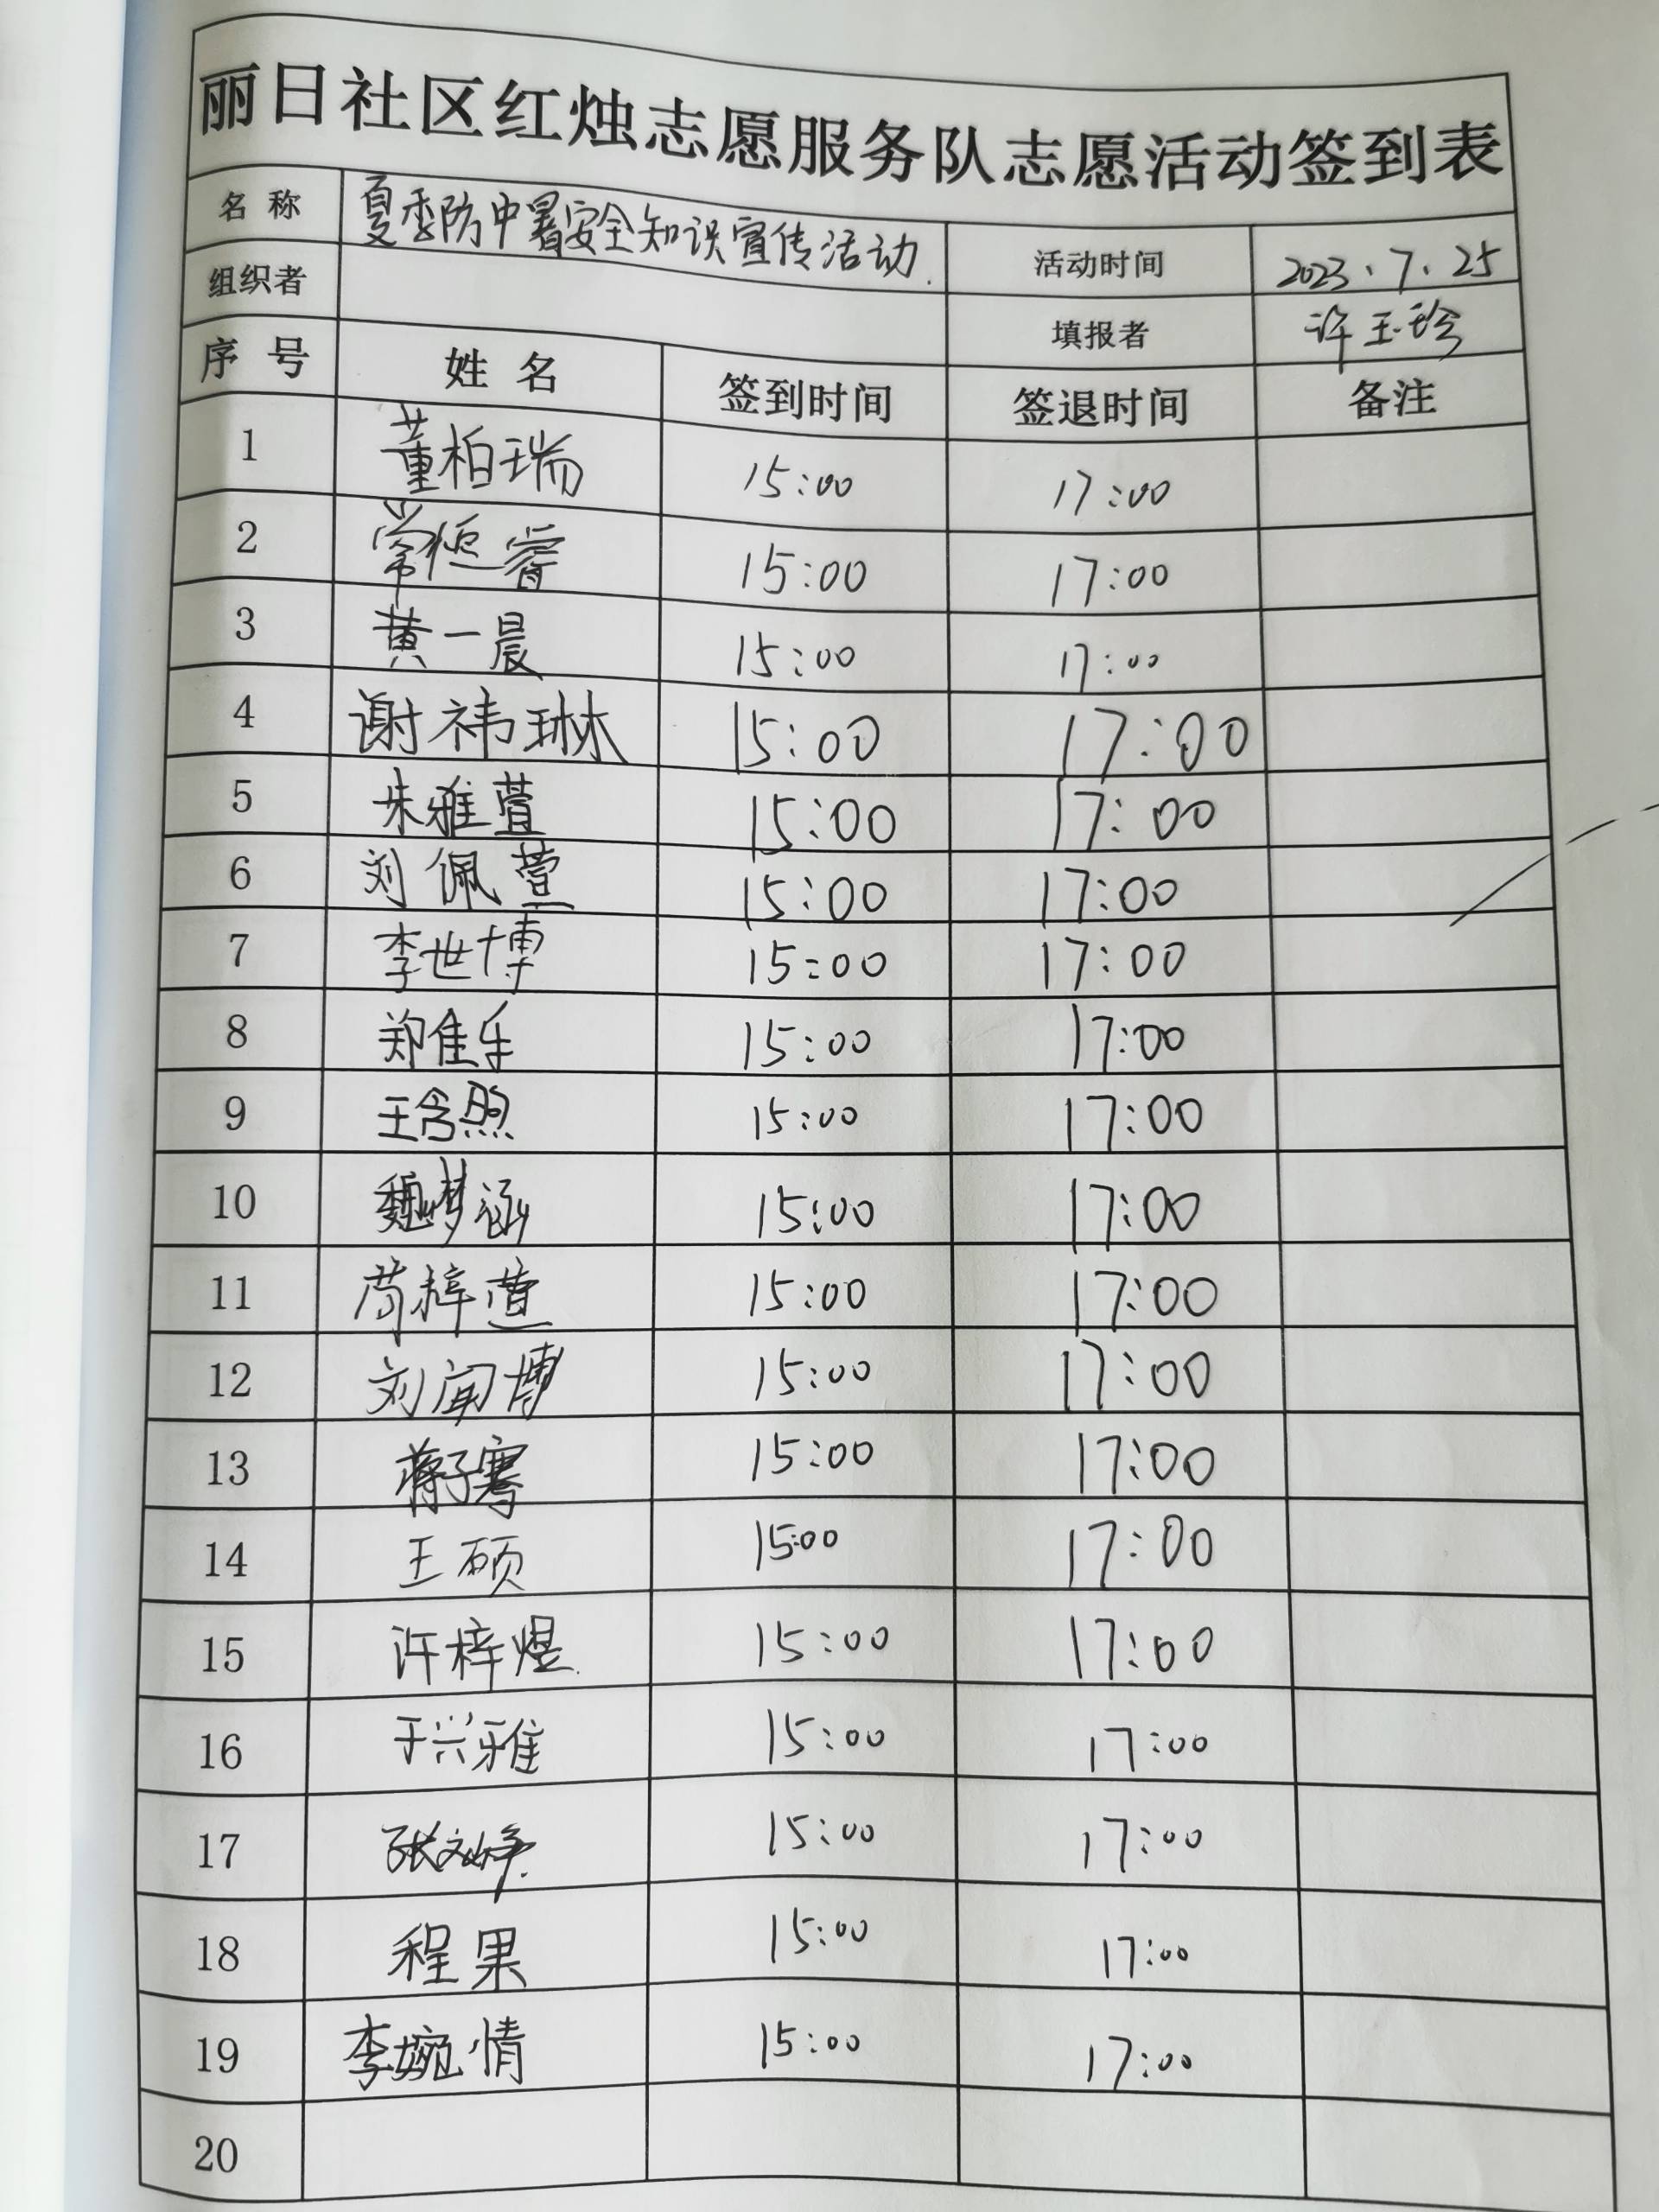 丽日社区红烛志愿服务队志愿活动签到表
名 称 夏季防中暑安全知识宣传活动. 活动时间 2023、7、25
组织者 填报者 许玉珍
序 号 姓 名 签到时间 签退时间 备注
1 董柏瑞 15:00 17:00
2 常恒睿 15:00 17:00
3 黄一晨 15:00 17:00
4 谢祎琳 15:00 17:00
5 朱雅萱 15:00 17:00
6 刘佩萱 15:00 17:00
7 李世博 15:00 17:00
8 郑佳乐 15:00 17:00
9 王含煦 15:00 17:00
10 魏梦涵 15:00 17:00
11 苟梓萱 15:00 17:00
12 刘闻博 15:00 17:00
13 蒋子骞 15:00 17:00
14 王硕 15:00 17:00
15 许梓煜 15:00 17:00
16 于兴雅 15:00 17:00
17 15:00 17:00
18 程果 15:00 17:00
19 李婉情 15:00 17:00
20